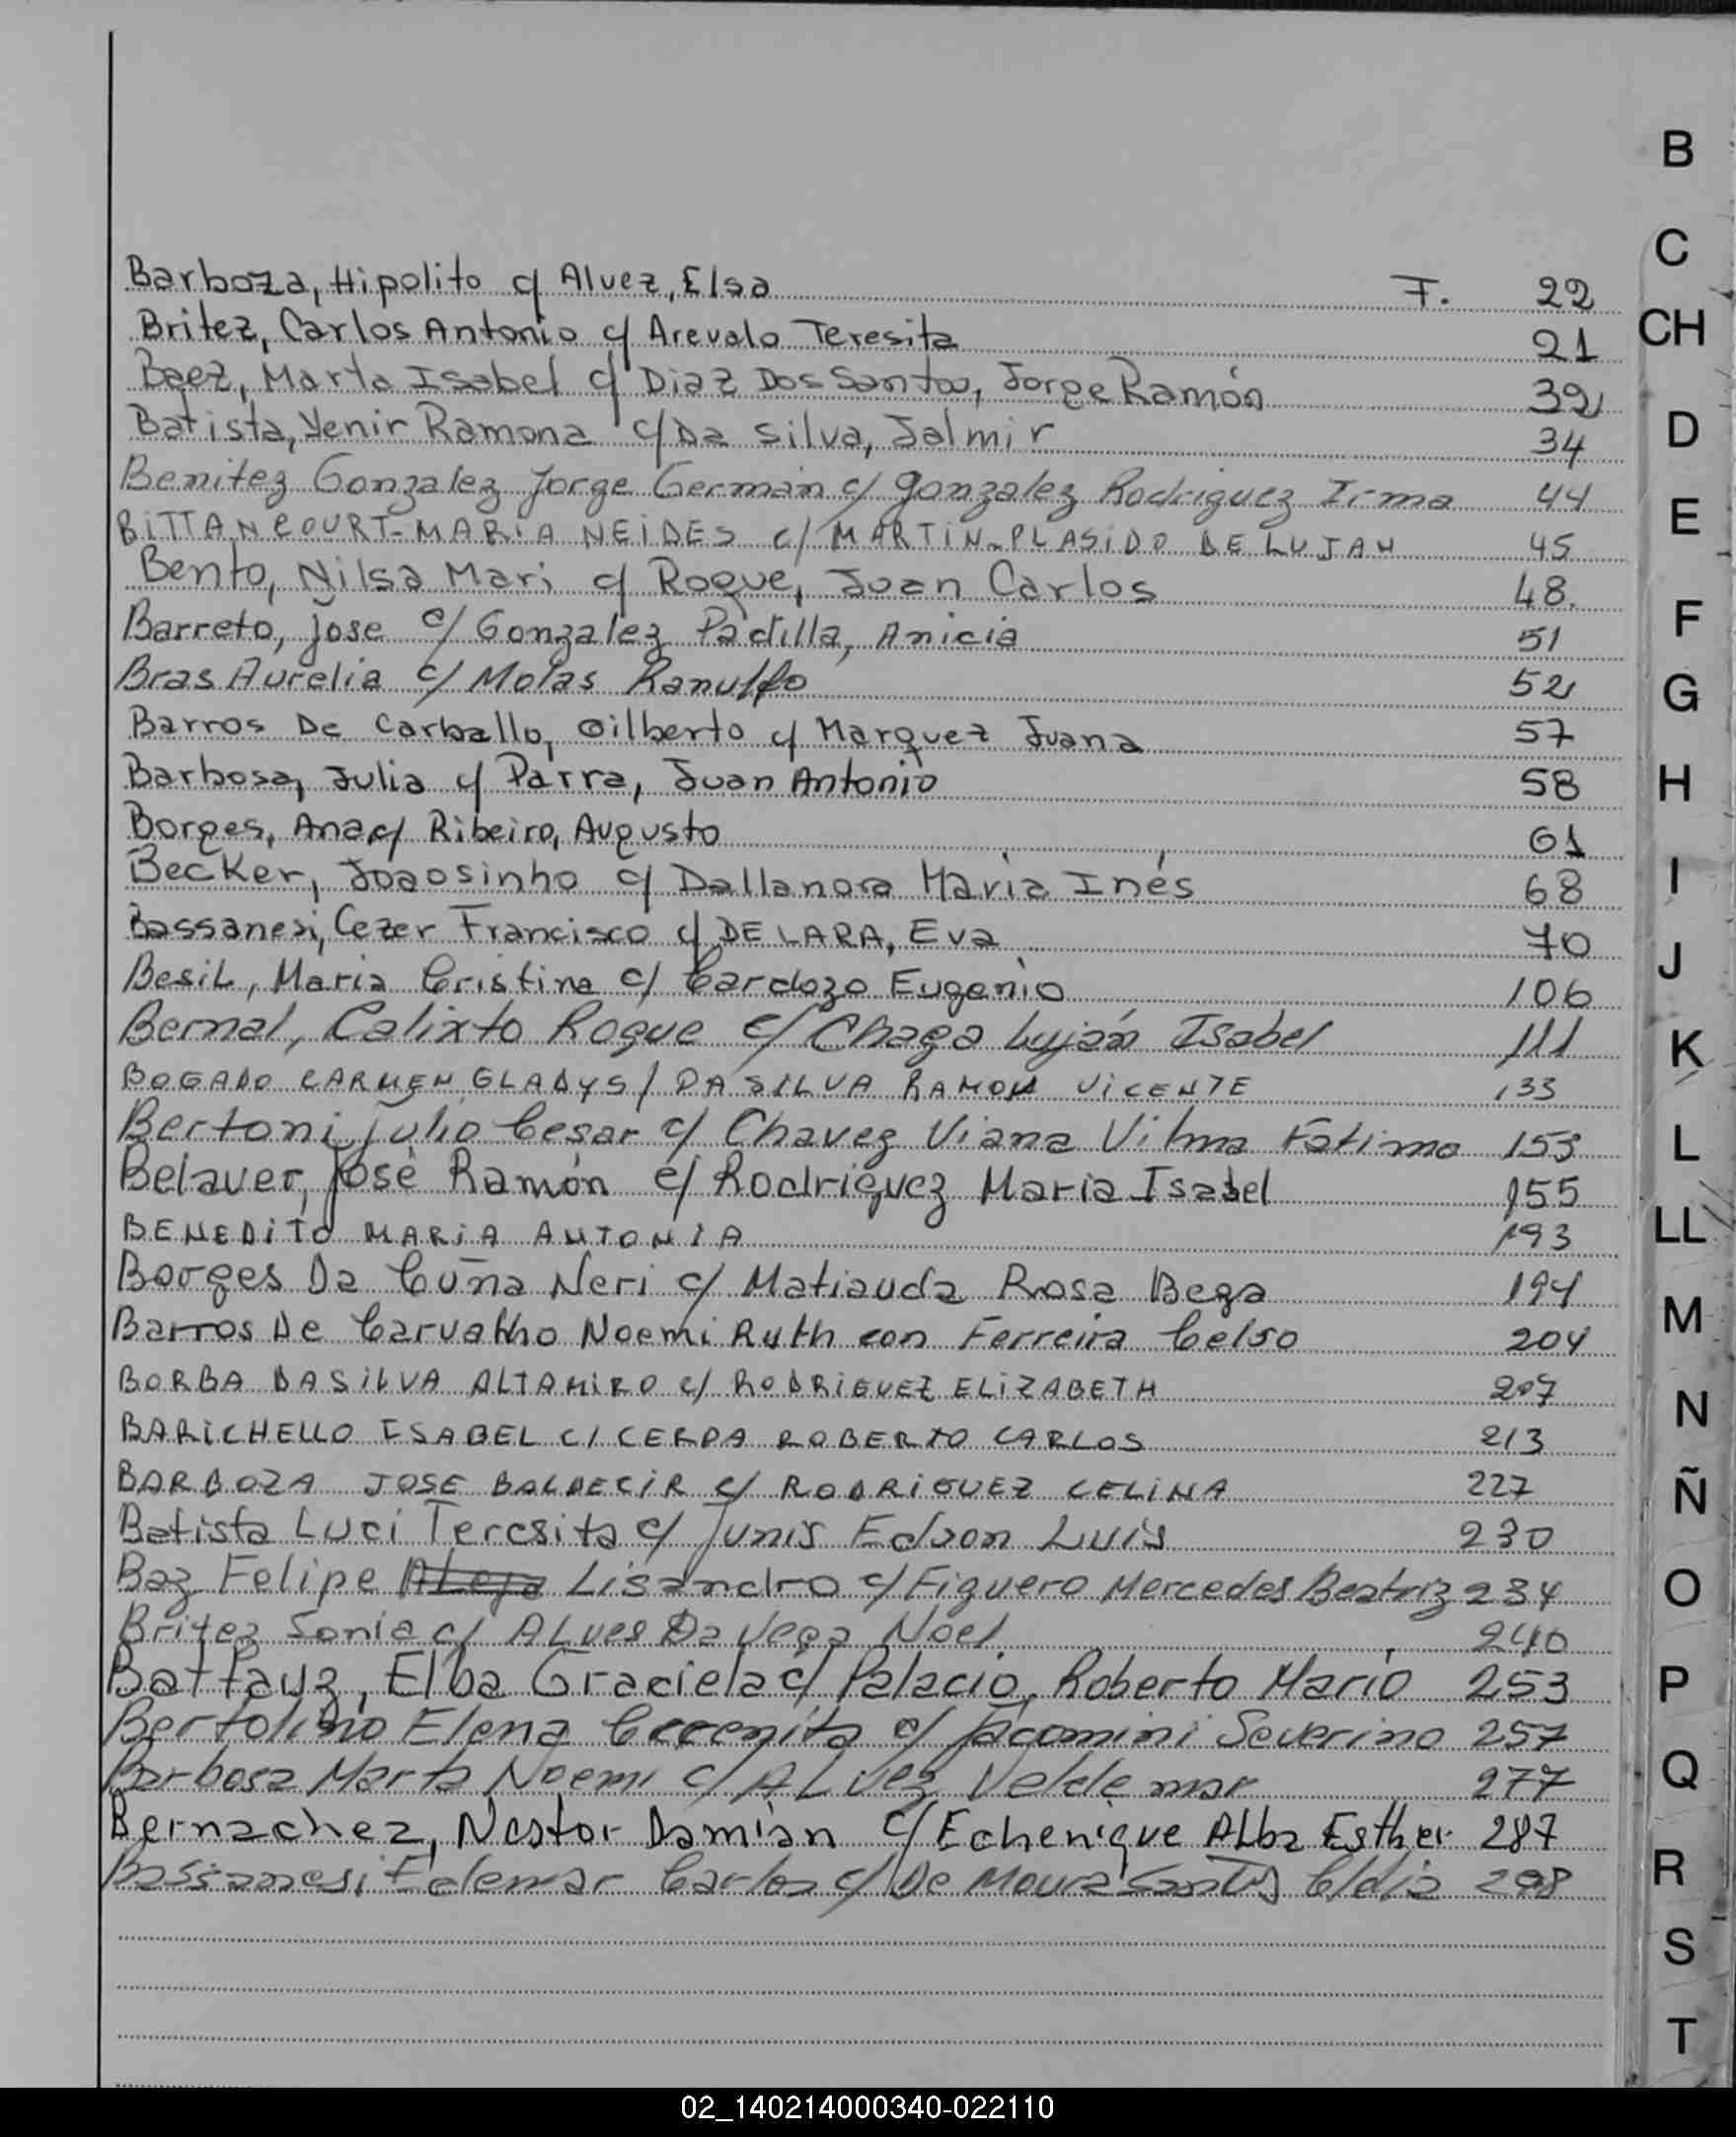 Barboza, Hipolito c/ Alvez, Elsa F. 22
Britez, Carlos Antonio c/ Arevalo Teresita 21
Baez, Marta Isabel c/ Diaz Dos Santos, Jorge Ramón 32
Batista, Yenir Ramona c/ Da Silva, Jalmir 34
Benitez Gonzalez Jorge German c/ Gonzalez Rodriguez Irma 44
BITTANCOURT-MARIA NEIDES c/ MARTIN-PLASIDO DE LUJAN 45
Bento, Nilsa Mari c/ Roque, Juan Carlos 48.
Barreto, Jose c/ Gonzalez Padilla, Anicia 51
Bras Aurelia c/ Molas Ranulfo 52
Barros De Carballo, Gilberto c/ Marquez Juana 57
Barbosa, Julia c/ Parra, Juan Antonio 58
Borges, Ana c/ Ribeiro, Augusto 61
Becker, Joaosinho c/ Dallanora Maria Inés 68
Bassanesi, Cezer Francisco c/ DE LARA, Eva 70
Besil, Maria Cristina c/ Cardozo Eugenio 106
Bernal, Calixto Roque c/ Chaga Luján Isabel 111
BOGADO CARMEN GLADYS / DA SILVA RAMON VICENTE 133
Bertoni Julio Cesar c/ Chavez Viana Vilma Fatima 153
Belaver, José Ramón c/ Rodriguez Maria Isabel 155
BENEDITO MARIA ANTONIA 193
Borges Da Cuña Neri c/ Matiauda Rosa Bega 194
Barros De Carvalho Noemi Ruth con Ferreira Celso 204
BORBA DASILVA ALTAMIRO c/ RODRIGUEZ ELIZABETH 207
BARICHELLO ISABEL C/ CERDA ROBERTO CARLOS 213
BARBOZA JOSE BALDECIR c/ RODRIGUEZ CELINA 227
Batista Luci Teresita c/ Junis Edson Luis 230
Baz Felipe Lisandro c/ Figuero Mercedes Beatriz 234
Britez Sonia c/ Alves Da Vega Noel 240
Battauz, Elba Graciela c/ Palacio, Roberto Mario 253
Bertolino Elena c/ Jacomini Severino 257
Barbosa Marta Noemi c/ Alvez Veldemar 277
Bernachez, Nestor Damián c/ Echenique Alba Esther 287
Bassanesi Edemar Carlos c/ De Moura Santos Cldia 298
B
C
CH
D
E
F
G
H
I
J
K
L
LL
M
N
Ñ
O
P
Q
R
S
T
02_140214000340-022110